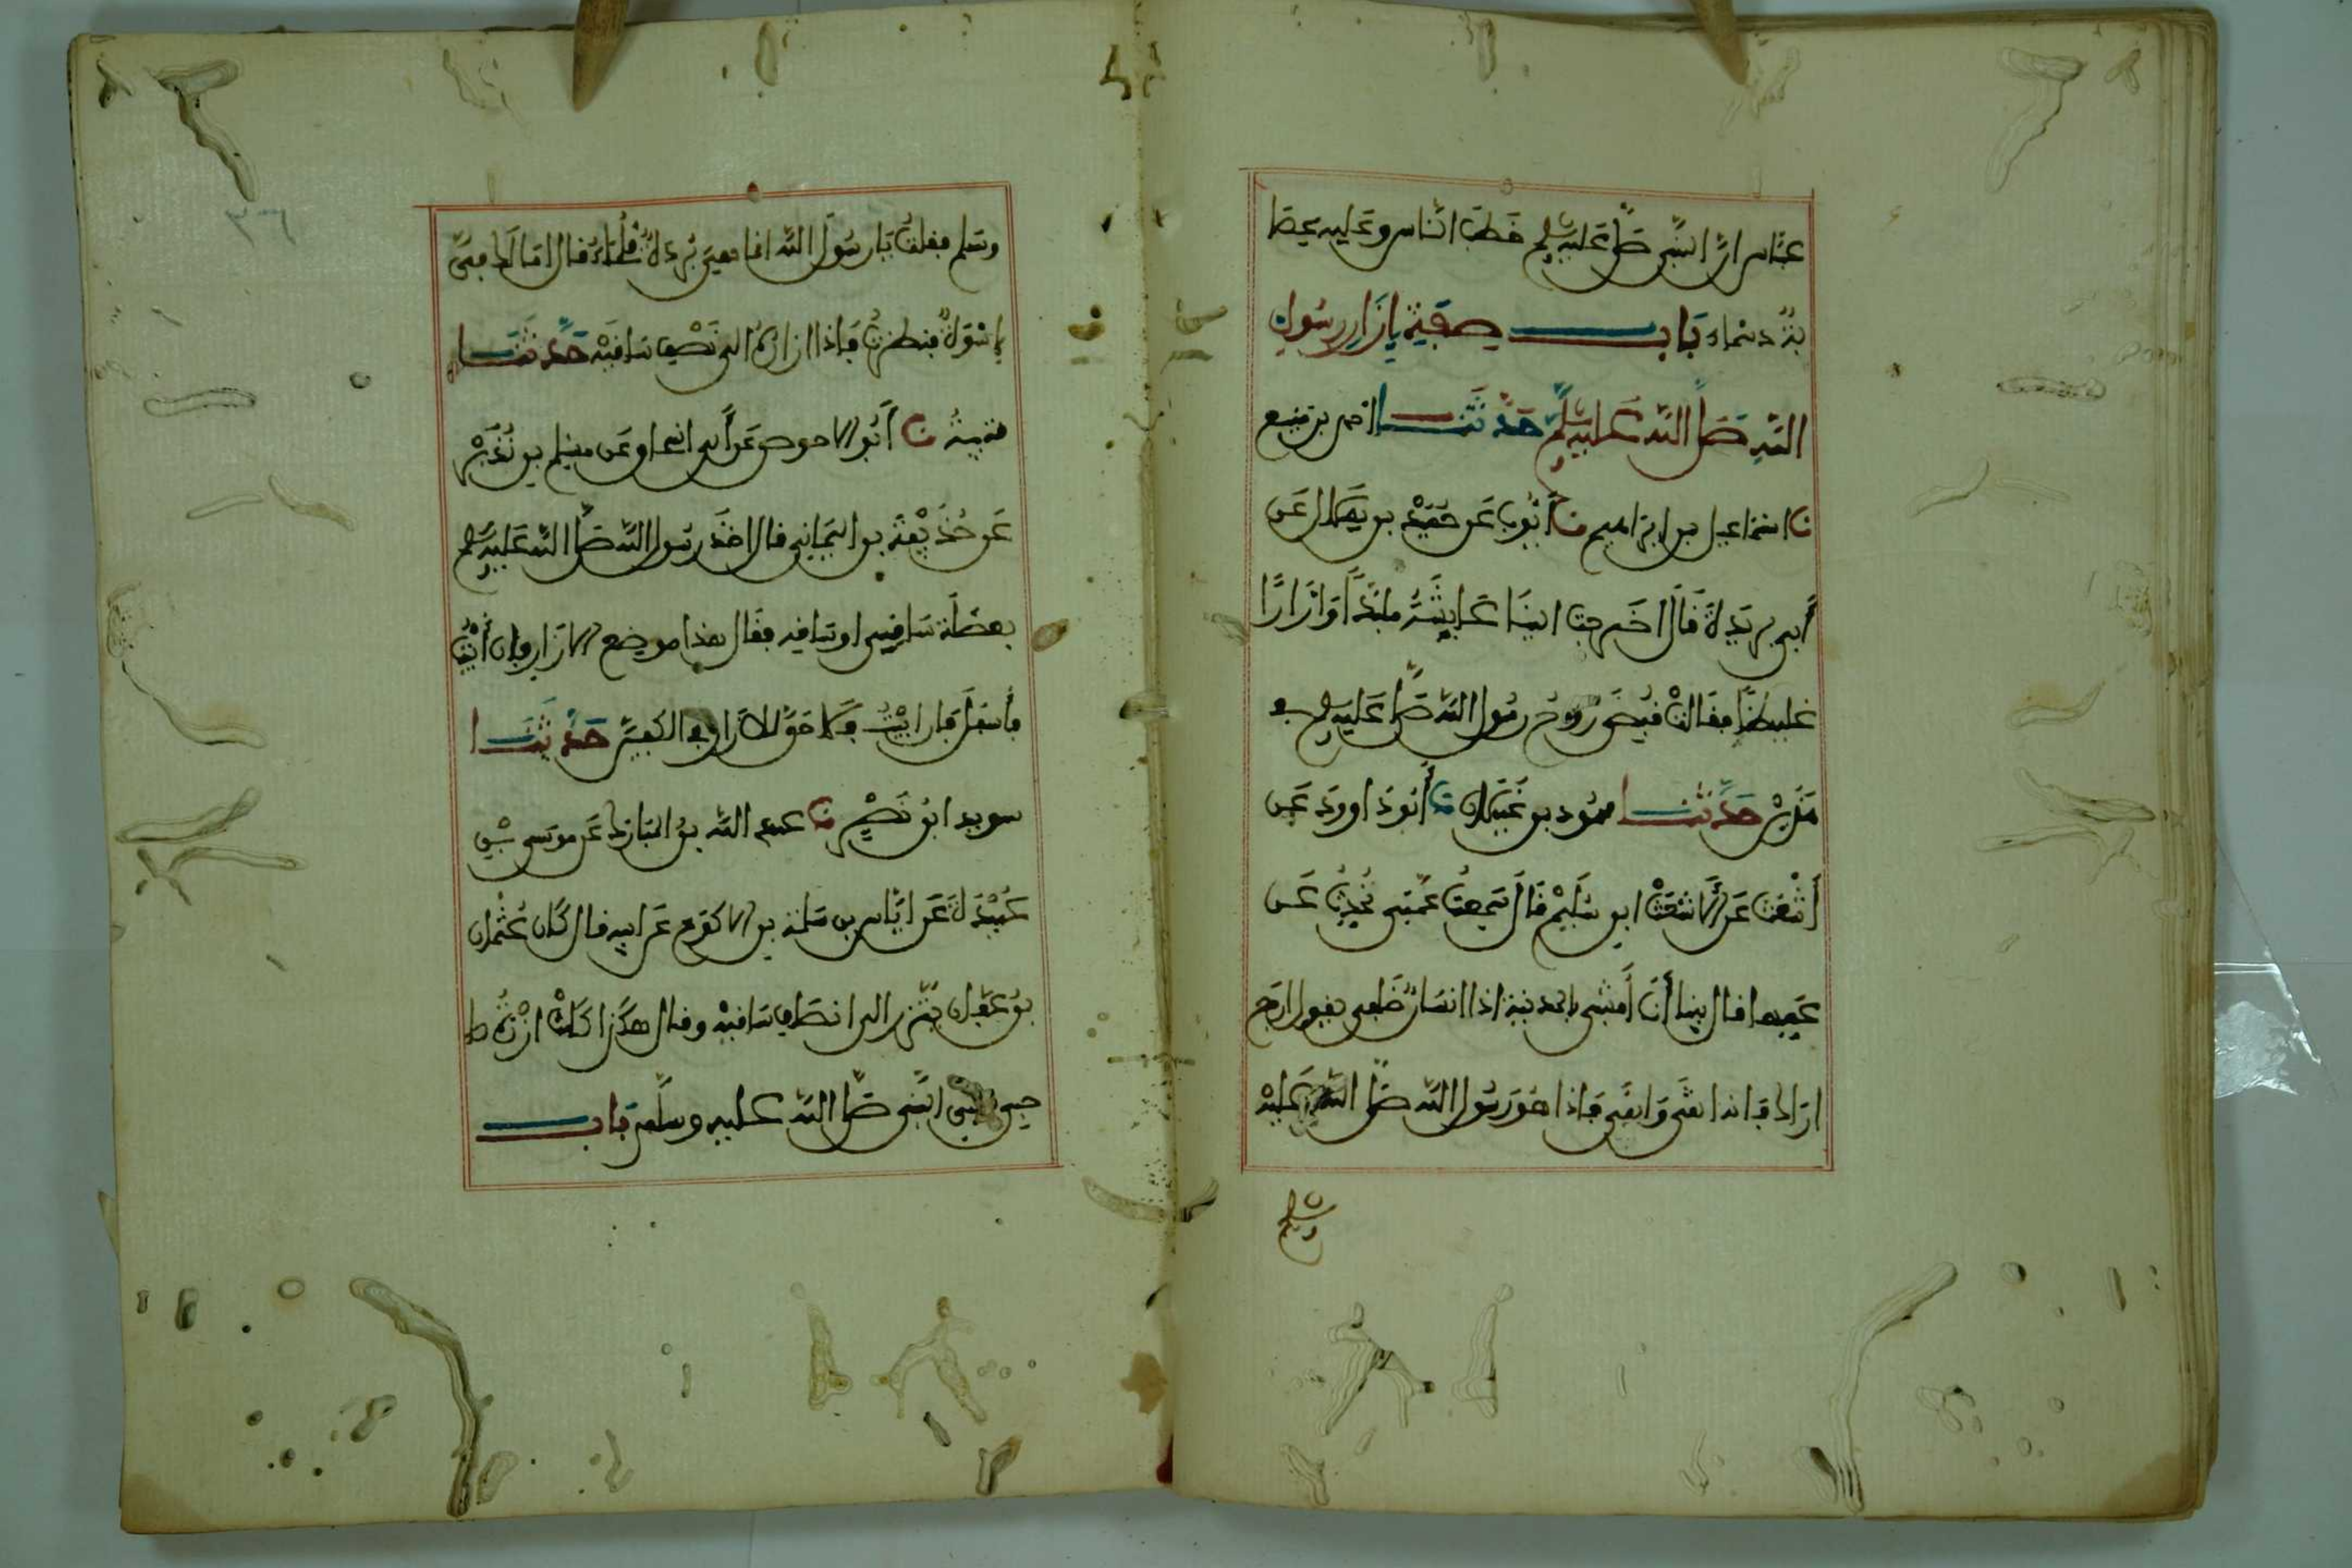 عباس ان النبي صلى عليه وسلم خطب الناس وعليه عصا
بة دسماء باب صفة إزار رسول
الله صلى الله عليه وسلم حدثنا احمد بن منيع
نا اسماعيل بن ابراهيم نا أيوب عن حميد بن هلال عن
أبي بردة قال اخرجت الينا عايشة ملبدا وازارا
غليظا فقالت قبض روح رسول الله صلى عليه وسلم في
هذين حدثنا محمود بن غيلان نا أبو داوود عن
أشعث عن الأشعث ابن سليم قال سمعت عمتي تحدث عن
عمها قال بينا أنا أمشي بالمدينة اذا انسان خلفي يقول ارفع
ازارك فانه اتقى وابقى فاذا هو رسول الله صلى الله عليه
وسلم
وسلم فقلت يا رسول الله انما هي بردة ملحاء قال اما لك في
إسوة فنظرت فاذا ازاره الى نصف ساقيه حدثنا
قتيبة نا أبو الاحوص عن أبي اسحاق عن مسلم بن نذير
عن حذيفة بن اليماني قال اخذ رسول الله صلى الله عليه وسلم
بعضلة ساقي او ساقه فقال هذا موضع الازار فان أبيت
فأسفل فان ابيت فلا حق للازار في الكعبين حدثنا
سويد ابن نصر نا عبد الله بن المبارك عن موسى بن
عبيدة عن اياس بن سلمة بن الاكوع عن ابيه قال كان عثمان
بن عفان يتزر الى انصاف ساقيه وقال هكذا كانت ازرة
صاحبي النبي صلى الله عليه وسلم باب